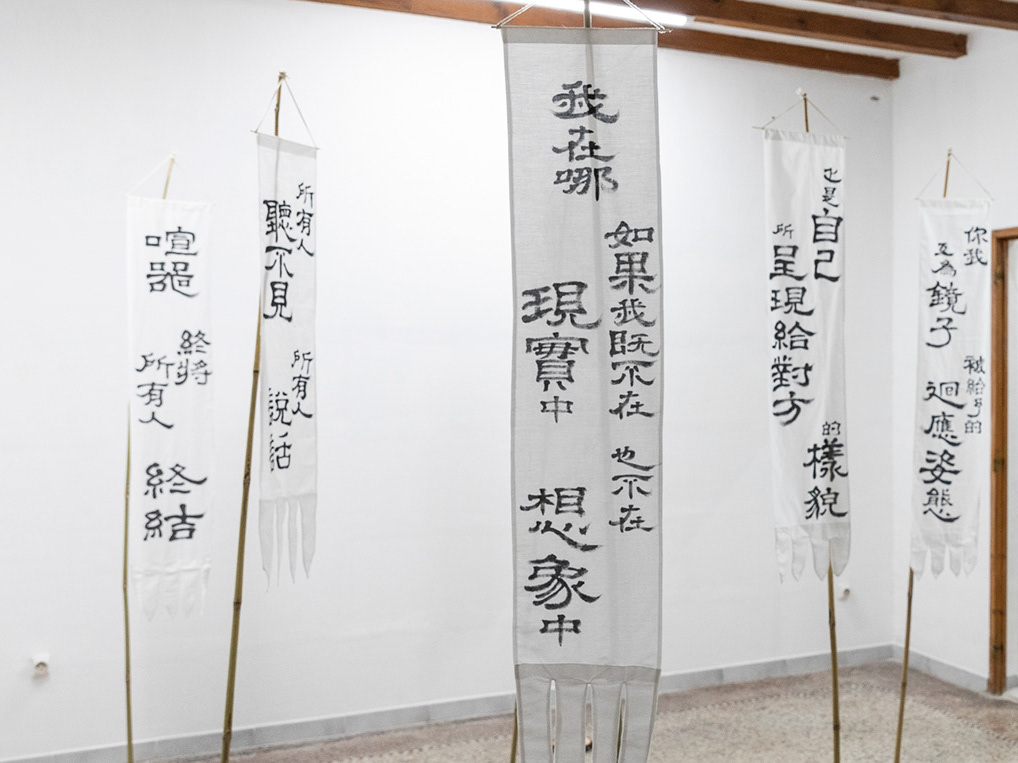 你我
互為鏡子
被給予的
迴應姿態
也是自己
所呈現給對方
的樣貌
如果我既不在
現實中
也不在
想象中
我在哪
所有人
聽不見
所有人
說話
喧囂
終將
所有人
終結